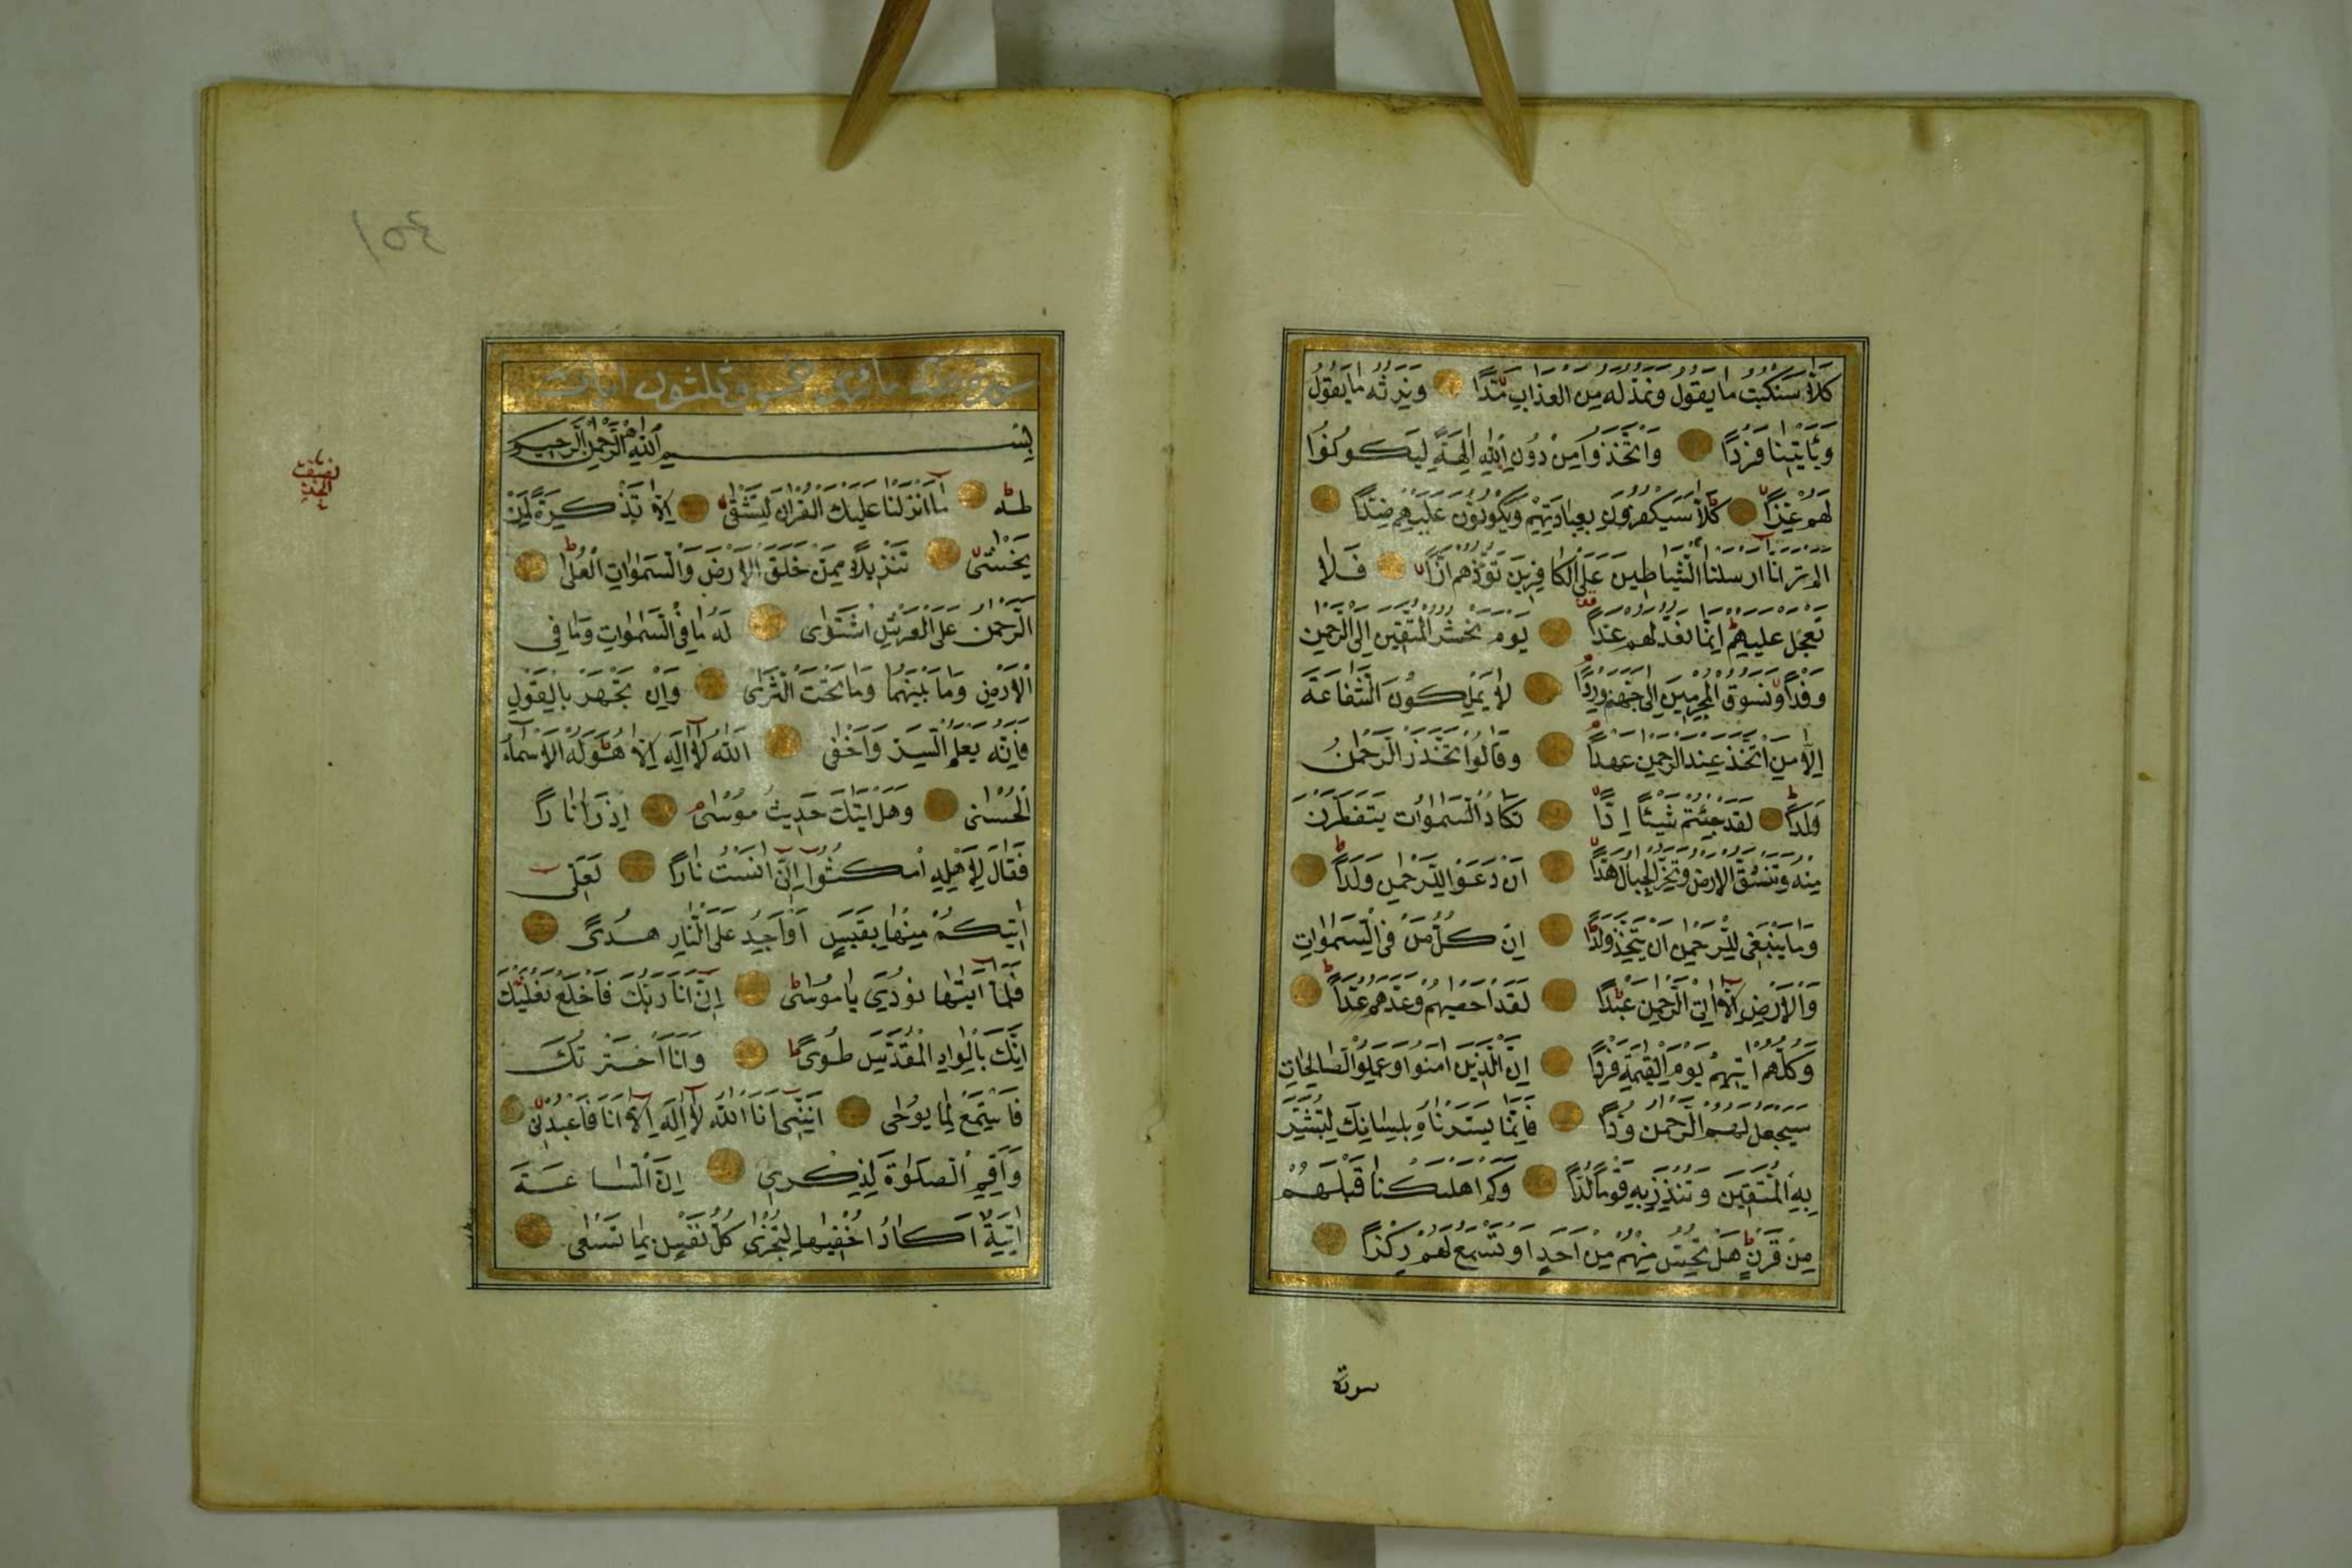 كلا سنكتب ما يقول ونمد له من العذاب مدا ونرثه ما يقول
ويأتينا فردا واتخذوا من دون الله الهة ليكونوا
لهم عزا كلا سيكفرون بعبادتهم ويكونون عليهم ضدا
الم تر انا ارسلنا الشياطين على الكافرين تؤزهم ازا فلا
تعجل عليهم انما نعد لهم عدا يوم نحشر المتقين الى الرحمن
وفدا ونسوق المجرمين الى جهنم وردا لا يملكون الشفاعة
الا من اتخذ عند الرحمن عهدا وقالوا اتخذ الرحمن
ولدا لقد جئتم شيئا ادا تكاد السموات يتفطرن
منه وتنشق الارض وتخر الجبال هدا ان دعوا للرحمن ولدا
وما ينبغي للرحمن ان يتخذ ولدا ان كل من في السموات
والارض الا اتى الرحمن عبدا لقد احصيهم وعدهم عدا
وكلهم اتيه يوم القيمة فردا ان الذين امنوا وعملوا الصالحات
سيجعل لهم الرحمن ودا فانما يسرناه بلسانك لتبشر
به المتقين وتنذر به قوما لدا وكم اهلكنا قبلهم
من قرن هل تحس منهم من احد او تسمع لهم ركزا
سورة
سورة طه مائة وخمس وثلثون ايات
بسم الله الرحمن الرحيم
طه ما انزلنا عليك القران لتشقى الا تذكرة لمن
يخشى تنزيلا ممن خلق الارض والسموات العلى
الرحمن على العرش استوى له ما في السموات وما في
الارض وما بينهما وما تحت الثرى وان تجهر بالقول
فانه يعلم السر واخفى الله لا اله الا هو له الاسماء
الحسنى وهل اتيك حديث موسى اذ رانارا
فقال لاهله امكثوا اني انست نارا لعلى
اتيكم منها بقبس او اجد على النار هدى
فلما اتيها نودي يا موسى اني انا ربك فاخلع نعليك
انك بالواد المقدس طوى وانا اخترتك
فاستمع لما يوحى انني انا الله لا اله الا انا فاعبدني
واقم الصلوة لذكري ان الساعة
اتية اكاد اخفيها لتجزى كل نفس بما تسعى
نصف
الجزء